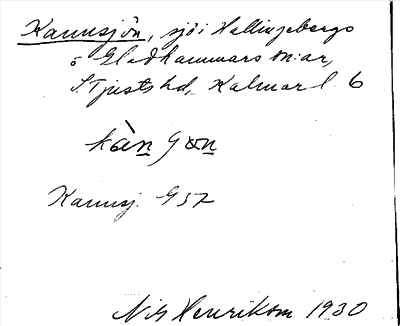 Kannsjön, sjö i Hallingebergs
o Gladhammars sn:ar,
S Tjusts hd, Kalmar l. 6
kàn ʃön
Kannsj. G 57
Nils Henrikson 1930